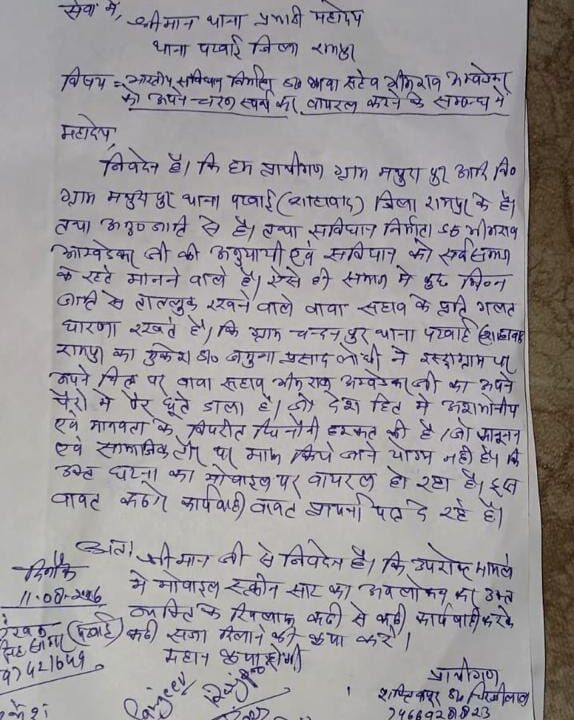 सेवा में,
श्रीमान थाना प्रभारी महोदय
थाना पटवाई जिला रामपुर
विषय = भारतीय संविधान निर्माता डा० बाबा साहेव भीमराव अम्वेडकर
को अपने चरण स्पर्श कर वायरल करने के सम्बन्ध में
महोदय,
निवेदन है। कि हम प्रार्थीगण ग्राम मथुरा पुर आदि नि०
ग्राम मथुरा पुर थाना पटवाई (शाहाबाद) जिला रामपुर के है।
तथा अनु० जाति से है। तथा संविधान निर्माता डा० भीमराव
आम्वेडकर जी की अनुयायी एवं संविधान को सर्व सम्मान
के रहते मानने वाले है। ऐसे ही समाज मे कुछ भिन्न
जाति से ताल्लुक रखने वाले वावा साहाव के प्रति गलत
धारणा रखते है। कि ग्राम चन्दन पुर थाना पटवाई
रामपुर का मुकेश S/o जमुना प्रसाद लोधी ने इंस्टाग्राम पर
अपने चित्र पर वावा साहाव भीमराव अम्वेडकर जी का अपने
पैरो मे पैर छूते डाला है। जो देश हित मे अशोभनीय
एवं मानवता के विपरीत घिनौनी हरकत की है। जो कानूनन
एवं सामाजिक तौर पर माफ किये जाने योग्य नही है। कि
उक्त घटना का मोवाइल पर वायरल हो रहा है। इस
वावत कठोर कार्यवाही वावत प्रार्थना पत्र दे रहे है।
अतः श्रीमान जी से निवेदन है। कि उपरोक्त मामले
मे मोवाइल स्क्रीन सॉट का अवलोकन कर उक्त
व्यक्ति के खिलाफ कडी से कडी कार्यवाही करके
कडी सजा दिलाने की कृपा करे।
महान कृपा होगी
दिनाँक
प्रार्थीगण
Sanjeev